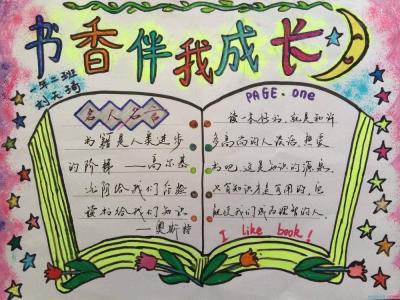 书香伴我成长
一年二班
名人名言
书籍是人类进步
的阶梯——高尔基
太阳给我们
给我们知识
——奥斯特
PAGE. one
读一本好书,就是和许
多高尚的人谈话,热爱
书吧,这是知识的源泉
只有知识才是有用的,
I like book!